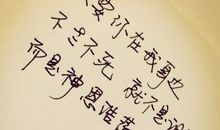 要你在我身边
不言不死 就不是
而是神恩浩荡